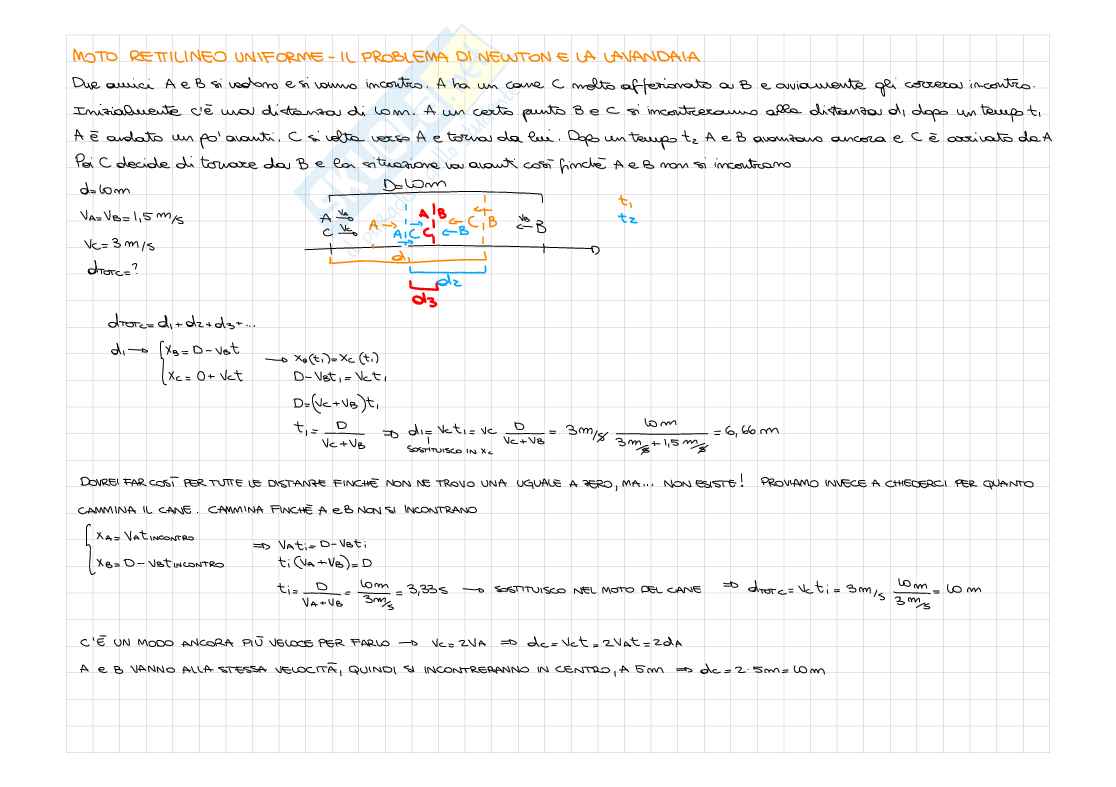 MOTO RETTILINEO UNIFORME - IL PROBLEMA DI NEWTON E LA LAVANDAIA
Due amici A e B si vedono e si vanno incontro. A ha un cane C molto affezionato a B e ovviamente gli correrà incontro.
Inizialmente c'è una distanza di 10m. A un certo punto B e C si incontreranno alla distanza d1 dopo un tempo t1
A è andato un po' avanti. C si volta verso A e torna da lui. Dopo un tempo t2 A e B avanzano ancora e C è arrivato da A
Poi C decide di tornare da B e la situazione va avanti così finchè A e B non si incontrano
D=10m
d=10m
VA=VB=1,5 m/s
VC=3 m/s
dTOTC=?
A VA A B B VB B
C VC A C C C B
t1
t2
D
d1
d2
d3
dTOTC=d1+d2+d3+...
d1 → { xB=D-VBt → xB(t1)=xC(t1)
xC=0+VCt D-VBt1=VCt1
D=(VC+VB)t1
t1= D / VC+VB ⇒ d1=VCt1=VC D / VC+VB = 3m/s 10m / 3m/s+1,5m/s = 6,66m
SOSTITUISCO IN XC
DOVREI FAR COSÌ PER TUTTE LE DISTANZE FINCHÈ NON NE TROVO UNA UGUALE A ZERO, MA... NON ESISTE! PROVIAMO INVECE A CHIEDERCI PER QUANTO
CAMMINA IL CANE. CAMMINA FINCHÈ A e B NON SI INCONTRANO
{ xA=VAtINCONTRO ⇒ VAti=D-VBti
xB=D-VBtINCONTRO ti(VA+VB)=D
ti= D / VA+VB = 10m / 3m/s = 3,33s → SOSTITUISCO NEL MOTO DEL CANE ⇒ dTOTC=VCti=3m/s 10m / 3m/s = 10m
C'È UN MODO ANCORA PIÙ VELOCE PER FARLO → VC=2VA ⇒ dC=VCt=2VAt=2dA
A e B VANNO ALLA STESSA VELOCITÀ, QUINDI SI INCONTRERANNO IN CENTRO, A 5m ⇒ dC=2·5m=10m